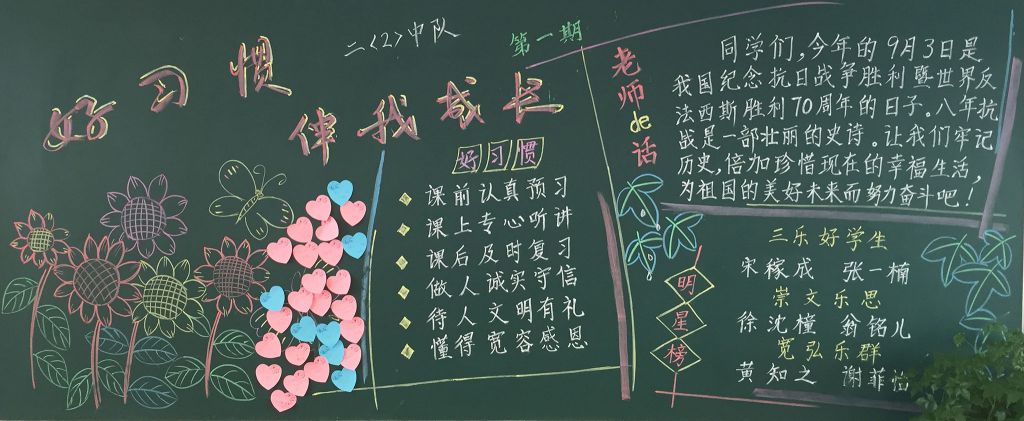 二<2>中队
第一期
好习惯
伴我成长
好习惯
课前认真预习
课上专心听讲
课后及时复习
做人诚实守信
待人文明有礼
懂得宽容感恩
老师de话
同学们,今年的9月3日是
我国纪念抗日战争胜利暨世界反
法西斯胜利70周年的日子。八年抗
战是一部壮丽的史诗。让我们牢记
历史,倍加珍惜现在的幸福生活,
为祖国的美好未来而努力奋斗吧!
明星榜
三乐好学生
宋稼成 张一楠
崇文乐思
徐沈橦 翁铭儿
宽弘乐群
黄知之 谢菲怡